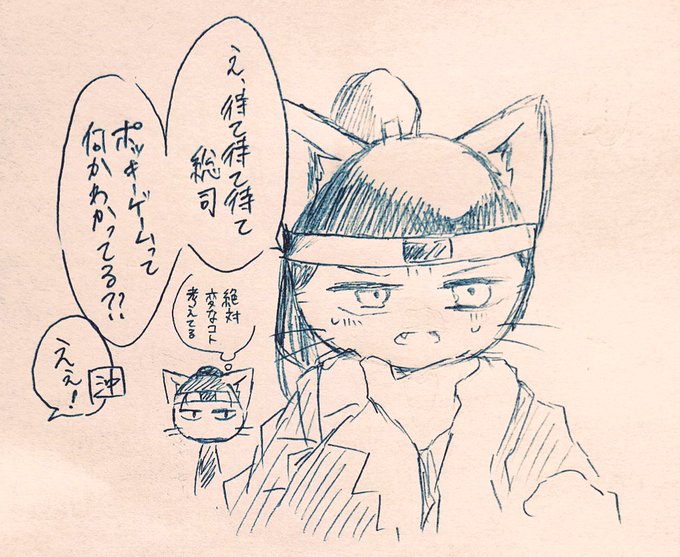 え、待て待て待て
総司
ポッキーゲームって
何かわかってる??
絶対
変なコト
考えてる
ええ!
沖